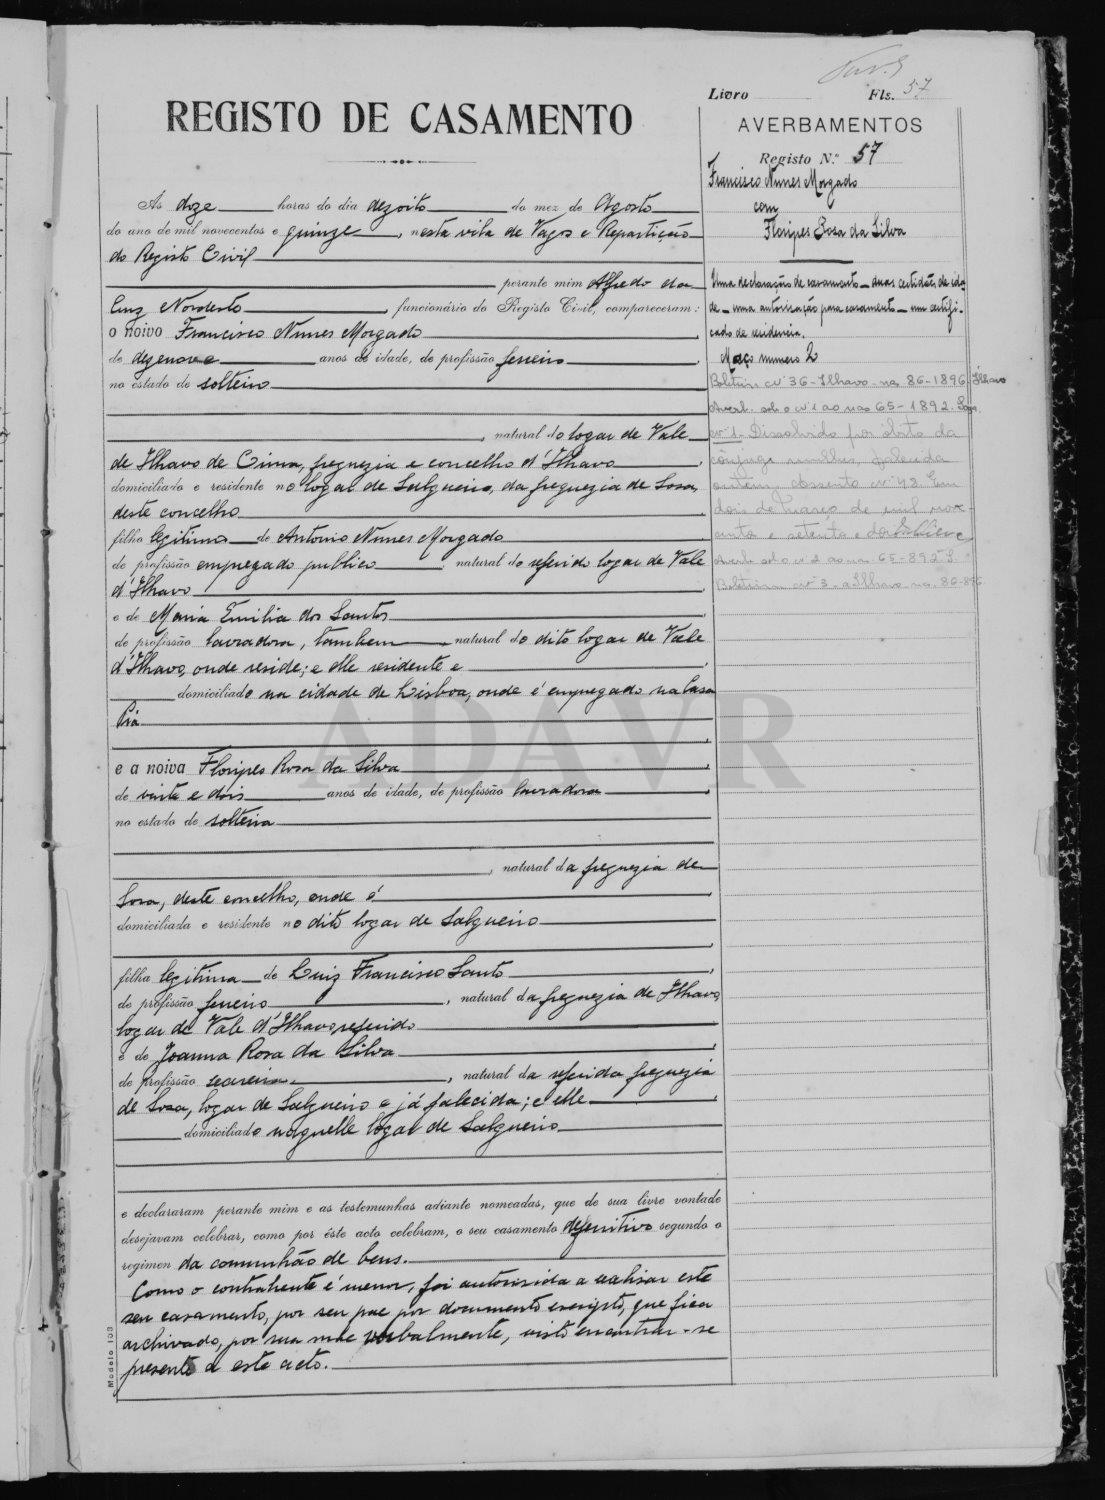 Livro Fls. 57
REGISTO DE CASAMENTO
Ás doze horas do dia dezoito do mez de Agosto
do ano de mil novecentos e quinze, nesta vila de Vagos e Repartição
do Registo Civil
perante mim Alfredo da
Cruz Nordesto, funcionário do Registo Civil, compareceram:
o noivo Francisco Nunes Morgado
de dezenove anos de idade, de profissão ferreiro
no estado de solteiro
, natural do logar de Vale
de Ilhavo de Cima, freguezia e concelho d'Ilhavo
domiciliado e residente no logar de Salgueiro, da freguezia de Sosa,
deste concelho
filho legitimo de Antonio Nunes Morgado
de profissão empregado publico natural do referido logar de Vale
d'Ilhavo
e de Maria Emilia dos Santos
de profissão lavradora, tambem natural do dito logar de Vale
d'Ilhavo, onde reside; e elle residente e
domiciliado na cidade de Lisboa, onde é empregado na Casa
Pia
e a noiva Floripes Rosa da Silva
de vinte e dois anos de idade, de profissão lavradora
no estado de solteira
, natural da freguezia de
Sosa, deste concelho, onde é
domiciliada e residente no dito logar de Salgueiro
filha legitima de Luiz Francisco Santo
de profissão ferreiro, natural da freguezia de Ilhavo,
logar de Vale d'Ilhavo, referido
e de Joanna Rosa da Silva
de profissão, natural da referida freguezia
de Sosa, logar de Salgueiro e já falecida; e elle
domiciliado naquelle logar de Salgueiro
e declararam perante mim e as testemunhas adiante nomeadas, que de sua livre vontade
desejavam celebrar, como por êste acto celebram, o seu casamento definitivo segundo o
regimen da comunhão de bens.
Como o contrahente é menor, foi autorisida a realisar este
seu casamento, por seu pae por documento escripto, que fica
archivado, por sua mãe verbalmente, visto encontrar-se
presente a este acto.
Modelo 103
AVERBAMENTOS
Registo N.º 57
Francisco Nunes Morgado
com
Floripes Rosa da Silva
Uma declaração de casamento - duas certidões de ida-
de - uma autorisação para casamento - um certifi-
cado de residencia.
Maço numero 2
Boletim nº 36 - Ilhavo - na 86-1896. Ilhavo
Averb. sob o nº 1 ao nas 65-1892.
Nº 1. Dissolvido por óbito da
cônjuge mulher, falecida
ontem. Assento nº 48. Em
dois de Março de mil nove-
centos e setenta e
Averb. sob o nº 2 ao na 65-892 S.
Boletim nº 3 - a Ilhavo - na 86-896
ADAVR